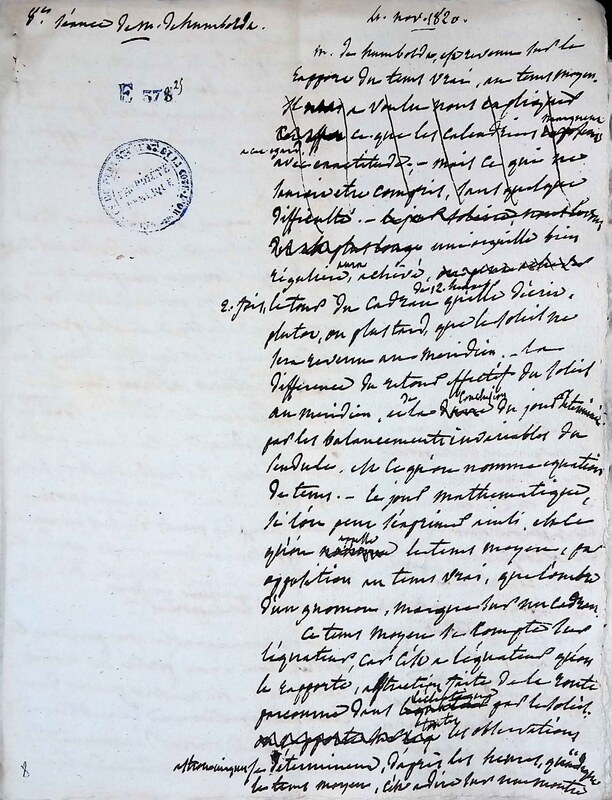 8.me séance de m. de humboldt.
4. nov. 1820.
E 578 25
m. de humboldt, est revenu sur le
rapport du tems vrai, au tems moyen.
il a voulu nous expliquer
ce que les calendriers marquent
a cet egard
avec exactitude, - mais ce qui ne
sauroit etre compris, sans quelque
difficulté. -
une aiguille bien
régulière, aura achevé,
2. fois, le tour du cadran de 12. heures qu'elle décrit,
plutot, ou plus tard, que le soleil ne
sera revenu au méridien. - la
différence du retour effectif du soleil
au méridien, et de la conclusion du jour déterminé
par les balancements invariables du
pendule, est ce qu'on nomme equation
de tems. - le jour mathématique,
si l'on peut s'exprimer ainsi, est le
qu'on appelle le tems moyen, par
opposition au tems vrai, que l'ombre
d'un gnomon, marque sur un cadran
Ce tems moyen se compte sur
l'équateur, car c'est a l'équateur qu'on
le rapporte, abstraction faite de la route
parcourue dans l'écliptique par le soleil.
toutes les observations
astronomiques se déterminent, d'après les heures, qu'indique
le tems moyen, c'est a dire sur une montre
8